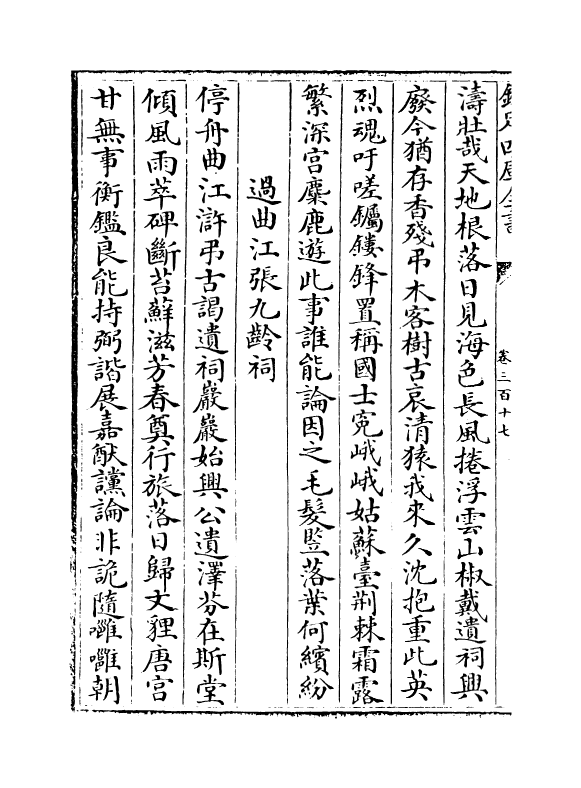 欽定四庫全書
卷三百十七
濤壯哉天地根落日見海色長風捲浮雲山椒戴遺祠興
廢今猶存香殘弔木客樹古哀清猿我來久沈抱重此英
烈魂吁嗟钃鏤鋒置稱國士寃峨峨姑蘇臺荆棘霜露
繁深宫麋鹿遊此事誰能論因之毛髮竪落葉何繽紛
過曲江張九齡祠
停舟曲江滸弔古謁遺祠巖巖始興公遺澤芬在斯堂
傾風雨萃碑斷苔蘚滋芳春奠行旅落日歸文貍唐宫
甘無事衡鑑良能持弼諧展嘉猷讜論非詭隨嘒嘒朝